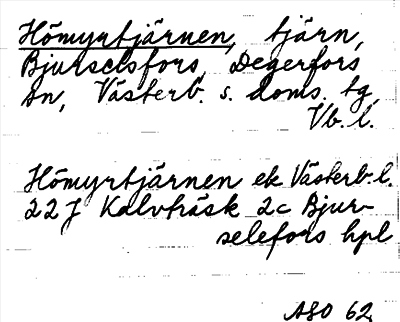 Hömyrtjärnen, tjärn,
Bjurselsfors, Degerfors
sn, Västerb. s. doms. tg,
Vb. l.
Hömyrtjärnen ek Västerb. l.
22 J Kalvträsk 2c Bjur-
selefors hpl
ASO 62